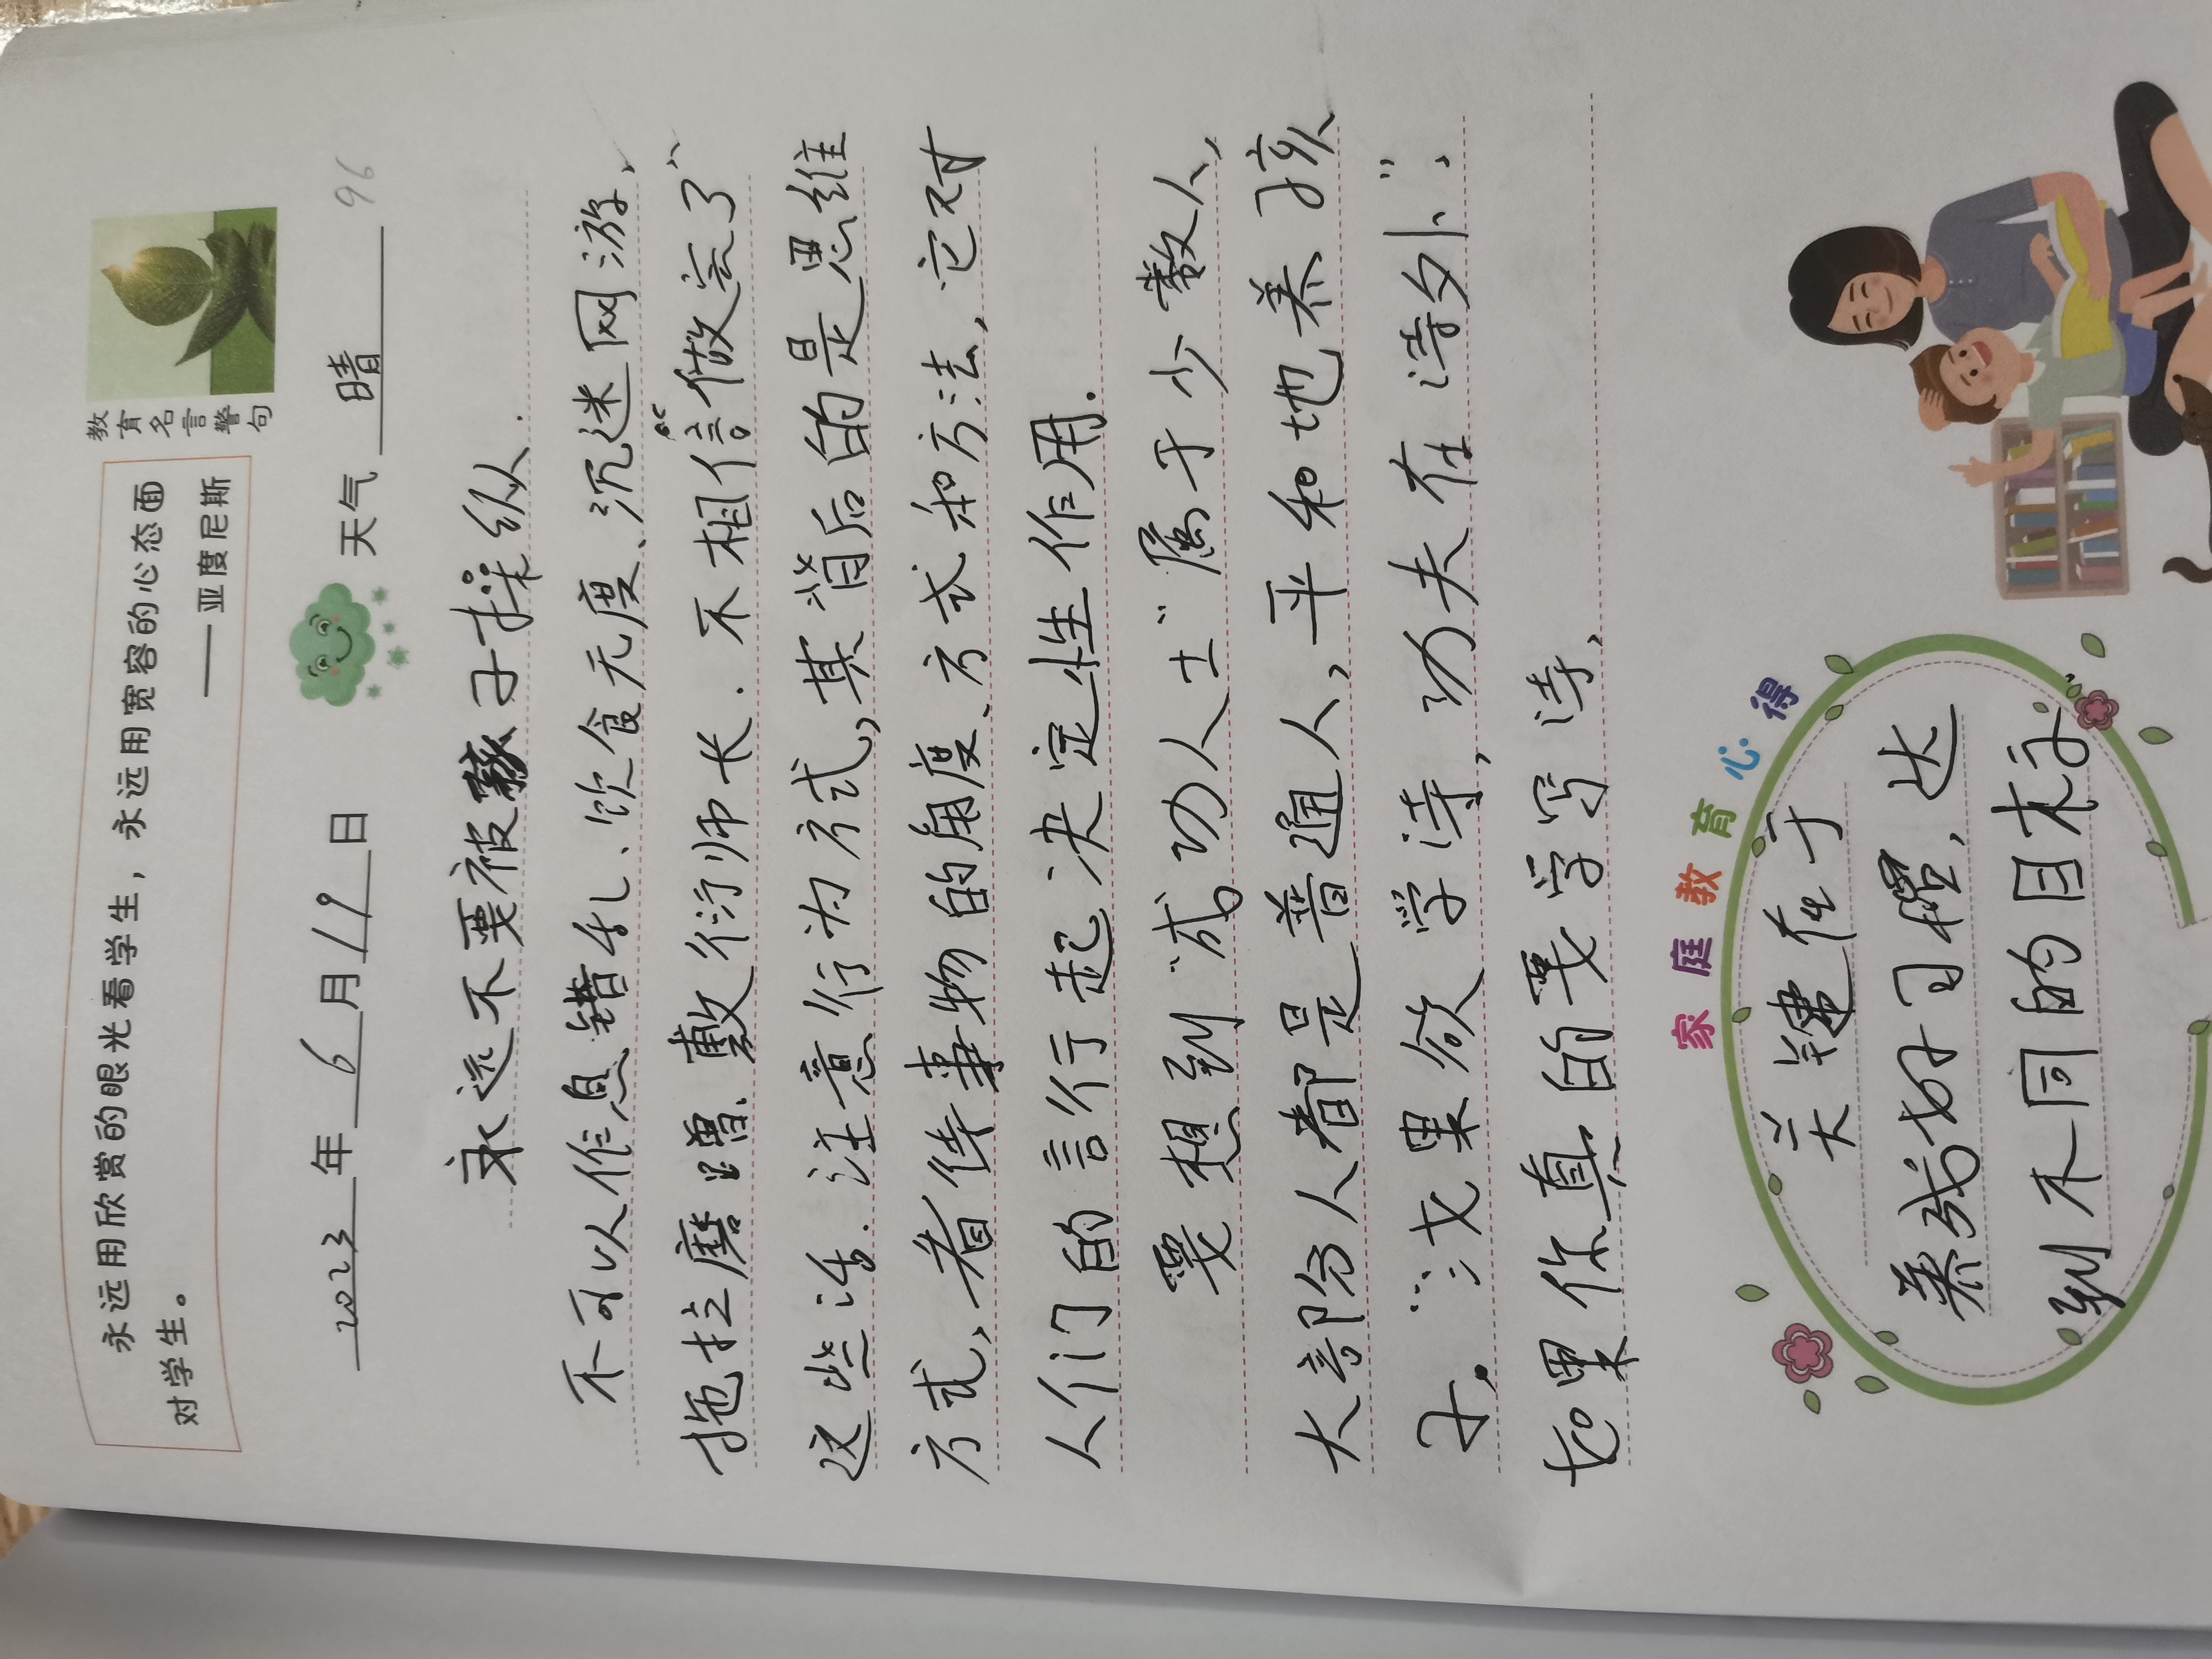 教育名言警句
永远用欣赏的眼光看学生，永远用宽容的心态面
对学生。
——亚度尼斯
2023年6月19日 天气 晴 96
永远不要被孩子操纵.
不可以作息错乱、饮食无度、沉迷网游、
拖拉磨蹭、敷衍师长. 不相信“做实了”
这些话. 注意行为方式, 其背后的是思维
方式, 看待事物的角度、方式和方法, 它对
人们的言行起决定性作用.
要想到“成功人士”属于少数人,
大部份人都是普通人, 平和地养孩
子. “汝果欲学诗, 功夫在诗外”,
如果你真的要学写诗,
家庭教育心得
关键在于
养成好习惯, 达
到不同的目标